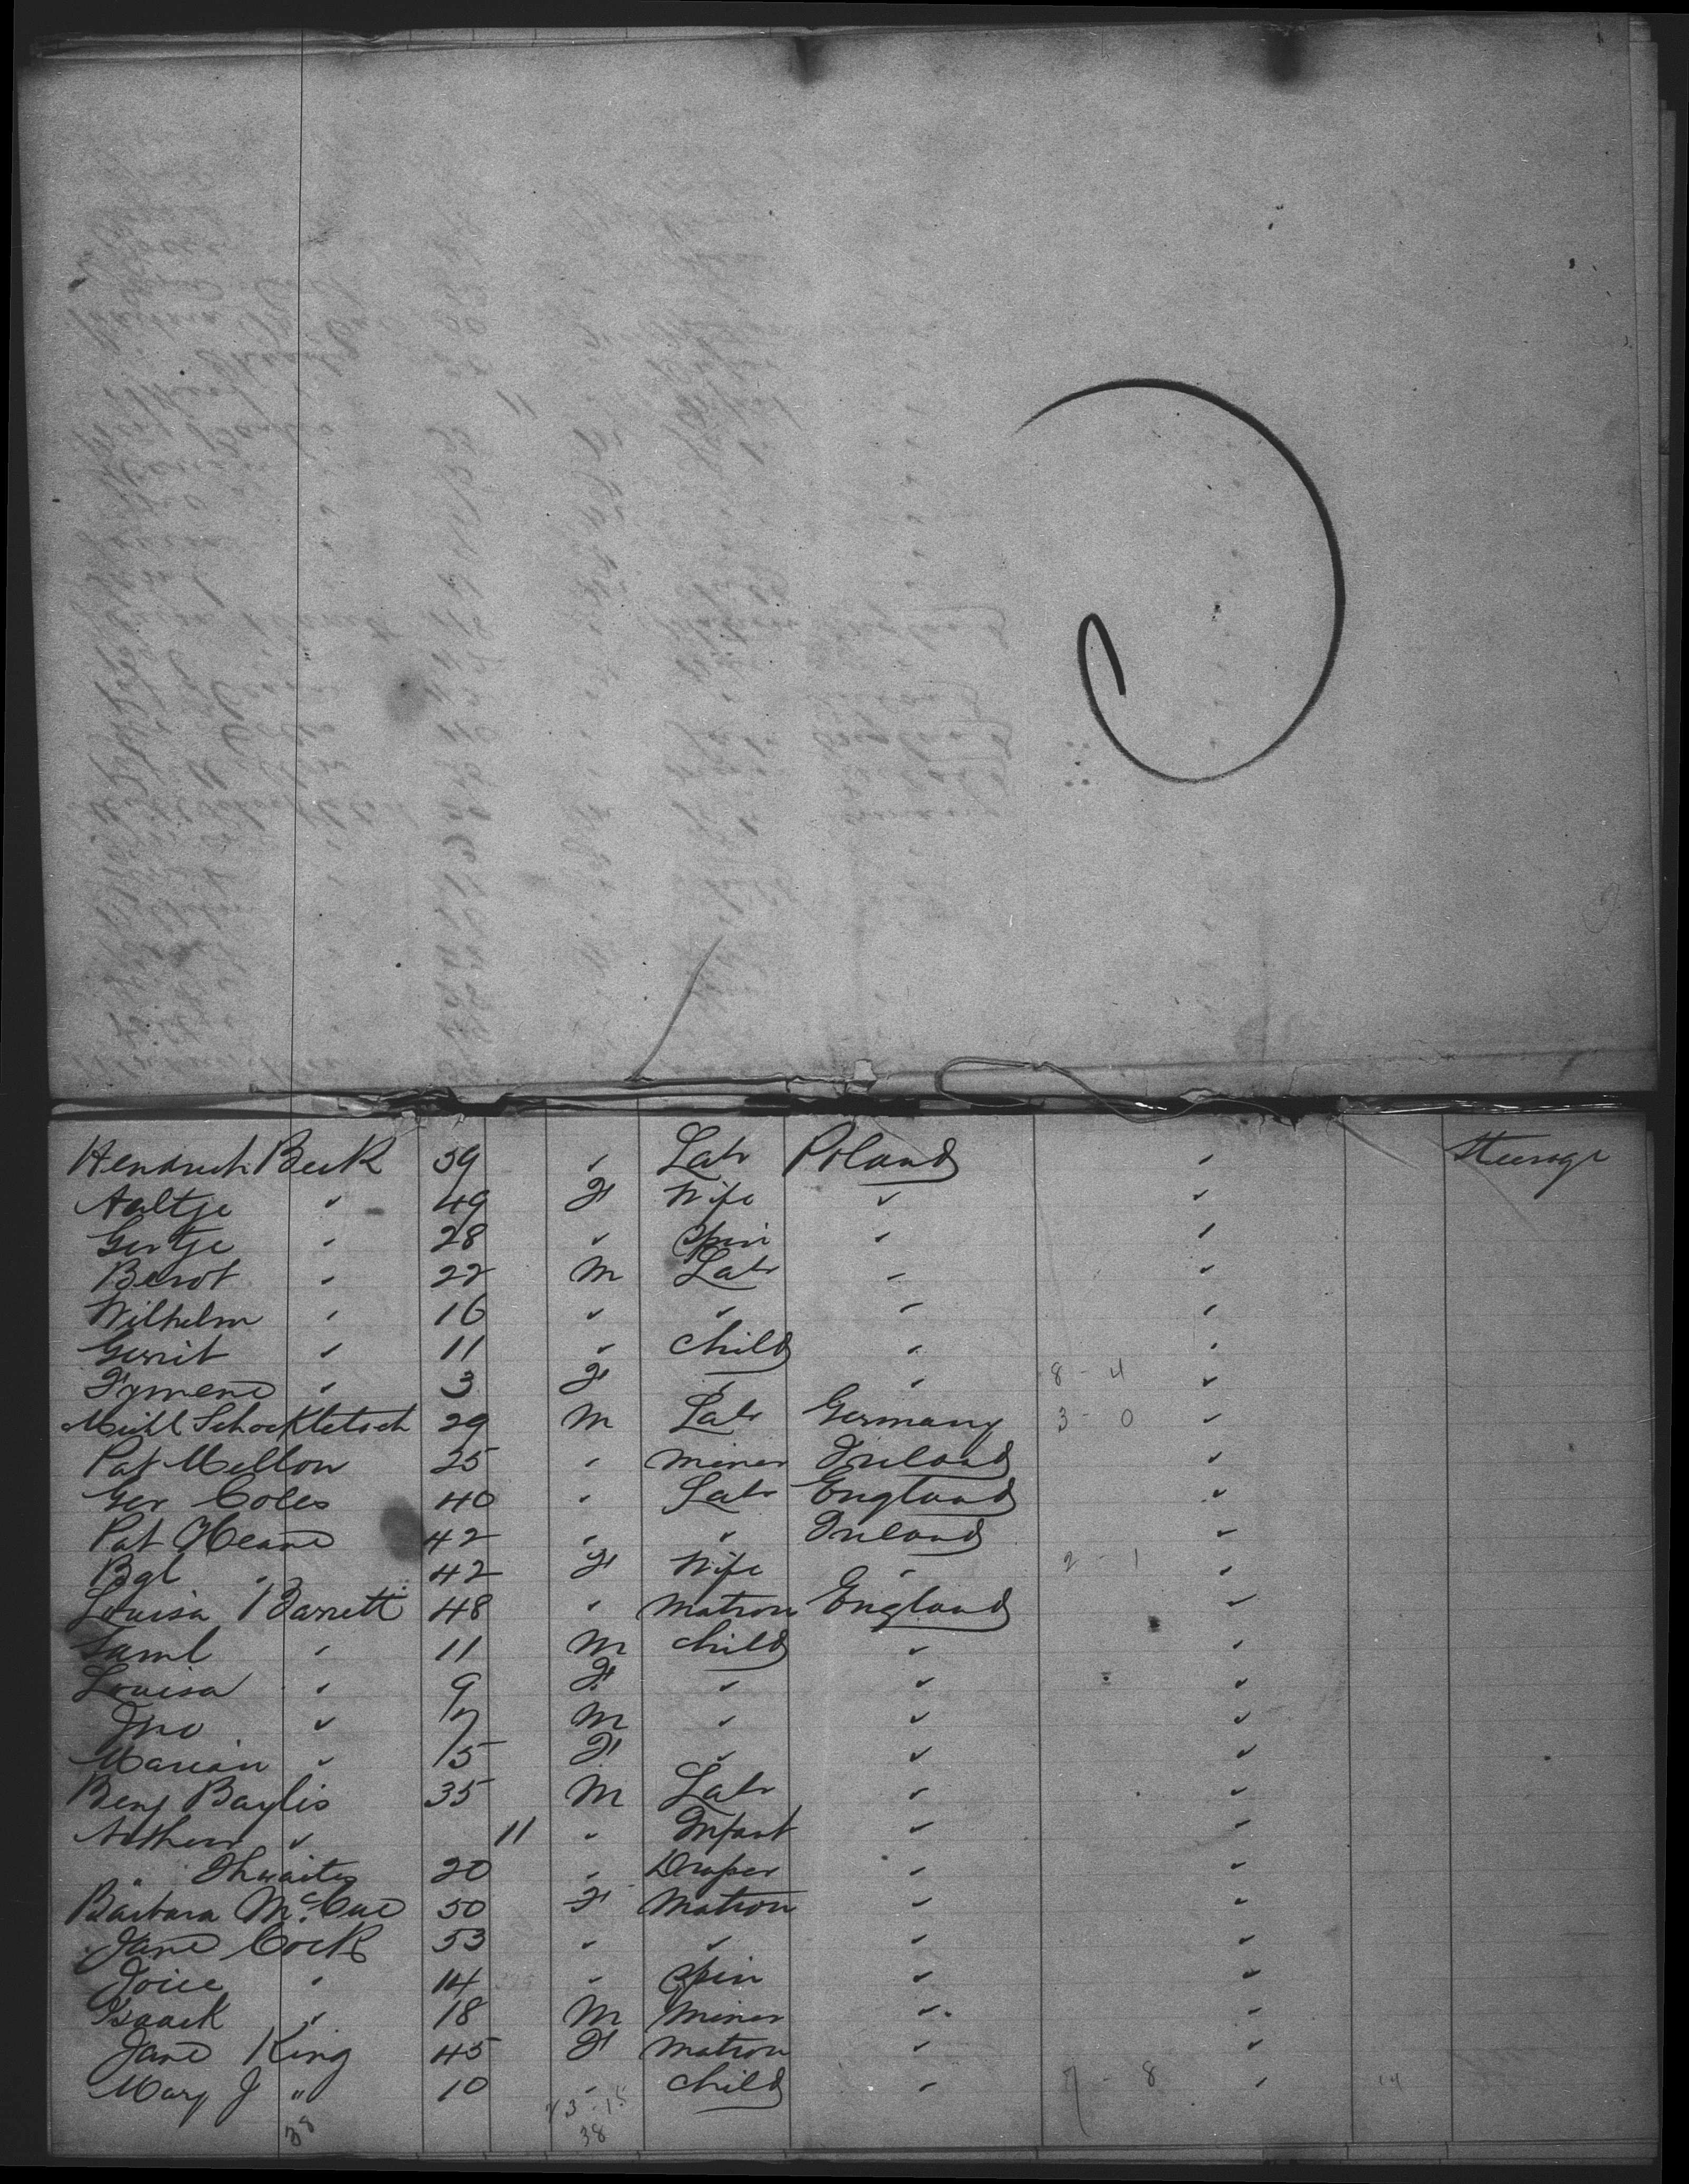 Hendrick Beek 59 " Labr Poland " Steerage
Aaltje " 49 F Wife " "
Gertje " 28 " Spin " "
Berot " 22 M Labr " "
Wilhelm " 16 " " " "
Gerrit " 11 " child " "
Fymena " 3 F " " 8 - 4 "
Michl Schockletsch 29 M Labr Germany 3 - 0 "
Pat Mellon 25 " miner Ireland "
Geo Coles 40 " Labr England "
Pat Heane 42 " " Ireland "
Bgt " 42 F Wife " 2 - 1 "
Louisa Barrett 48 " Matron England "
Saml " 11 M child " "
Louisa " 9 F " " "
Jno " 7 M " " "
Marian " 5 F " " "
Benj Baylis 35 M Labr " "
Arthur " 11 " Infant " "
" Thwaites 20 " Draper " "
Barbara McCue 50 F Matron " "
Jane Cock 53 " " " "
Joice " 14 " Spin " "
Isaack " 18 M Miner " "
Jane King 45 F Matron " "
Mary J " 10 " child " 7 - 8 " 14
38 38